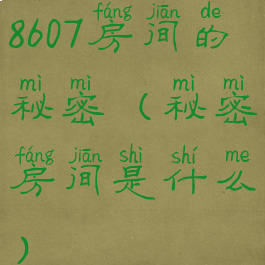 fáng jiān de
8607房间的
mì mì mì mì
秘密(秘密
fáng jiān shì shí me
房间是什么
)